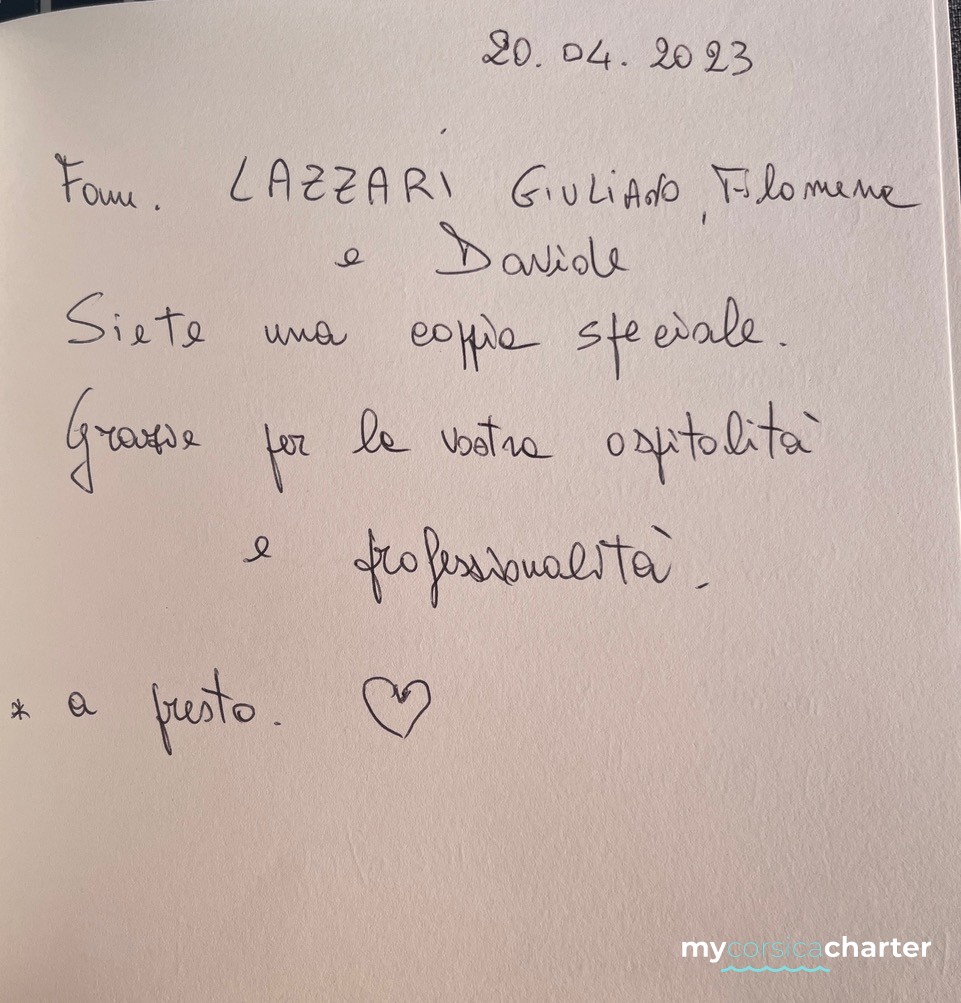 20. 04. 2023
Fam. LAZZARI GIULIANO, Filomena
e Davide
Siete una coppia speciale.
Grazie per la vostra ospitalità
e professionalità.
* a presto. ♡
mycorsicacharter